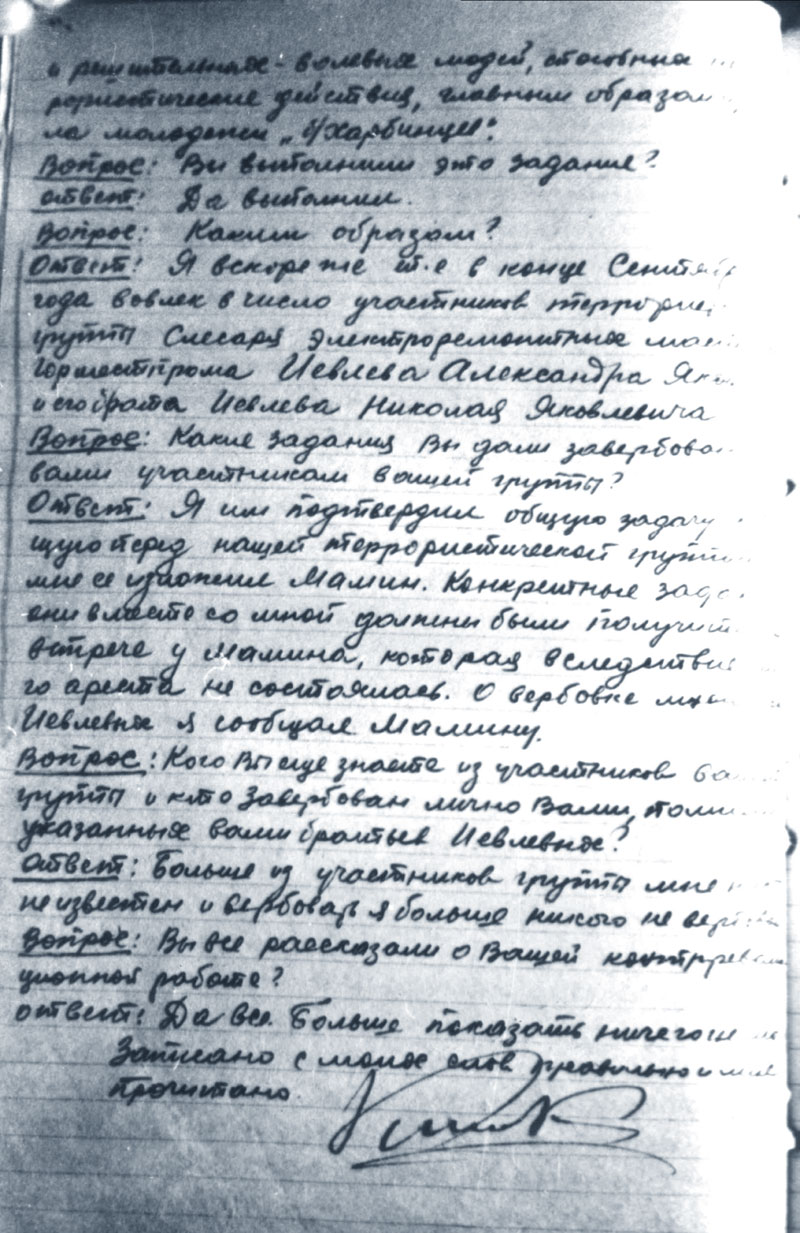 и решительных - волевых людей, способных
рористические действия, главным образом
ла молодежи „б/харбинцев".
Вопрос: Вы выполнили это задание?
Ответ: Да выполнил.
Вопрос: Каким образом?
Ответ: Я вскоре же т.е в конце Сентяб
года вовлек в число участников террорис
группы Слесаря электроремонтных мас
Горместпрома Иевлева Александра Як
и его брата Иевлева Николая Яковлевича
Вопрос: Какие задания Вы дали завербова
вами участникам вашей группы?
Ответ: Я им подтвердил общую задачу
щую перед нашей террористической групп
мне ее изложил Мамин. Конкретные зада
они вместе со мной должны были получит
встрече у Мамина, которая вследствие
го ареста не состоялась. О вербовке мн
Иевлевых я сообщал Мамину.
Вопрос: Кого Вы еще знаете из участников ва
группы и кто завербован лично Вами, поми
указанных вами братьев Иевлевых?
Ответ: Больше из участников группы мне н
не известен и вербовать я больше никого не вербов
Вопрос: Вы все рассказали о Вашей контррев
ционной работе?
ответ: Да все. Больше показать ничего н
Записано с моих слов правильно и мне
прочитано.